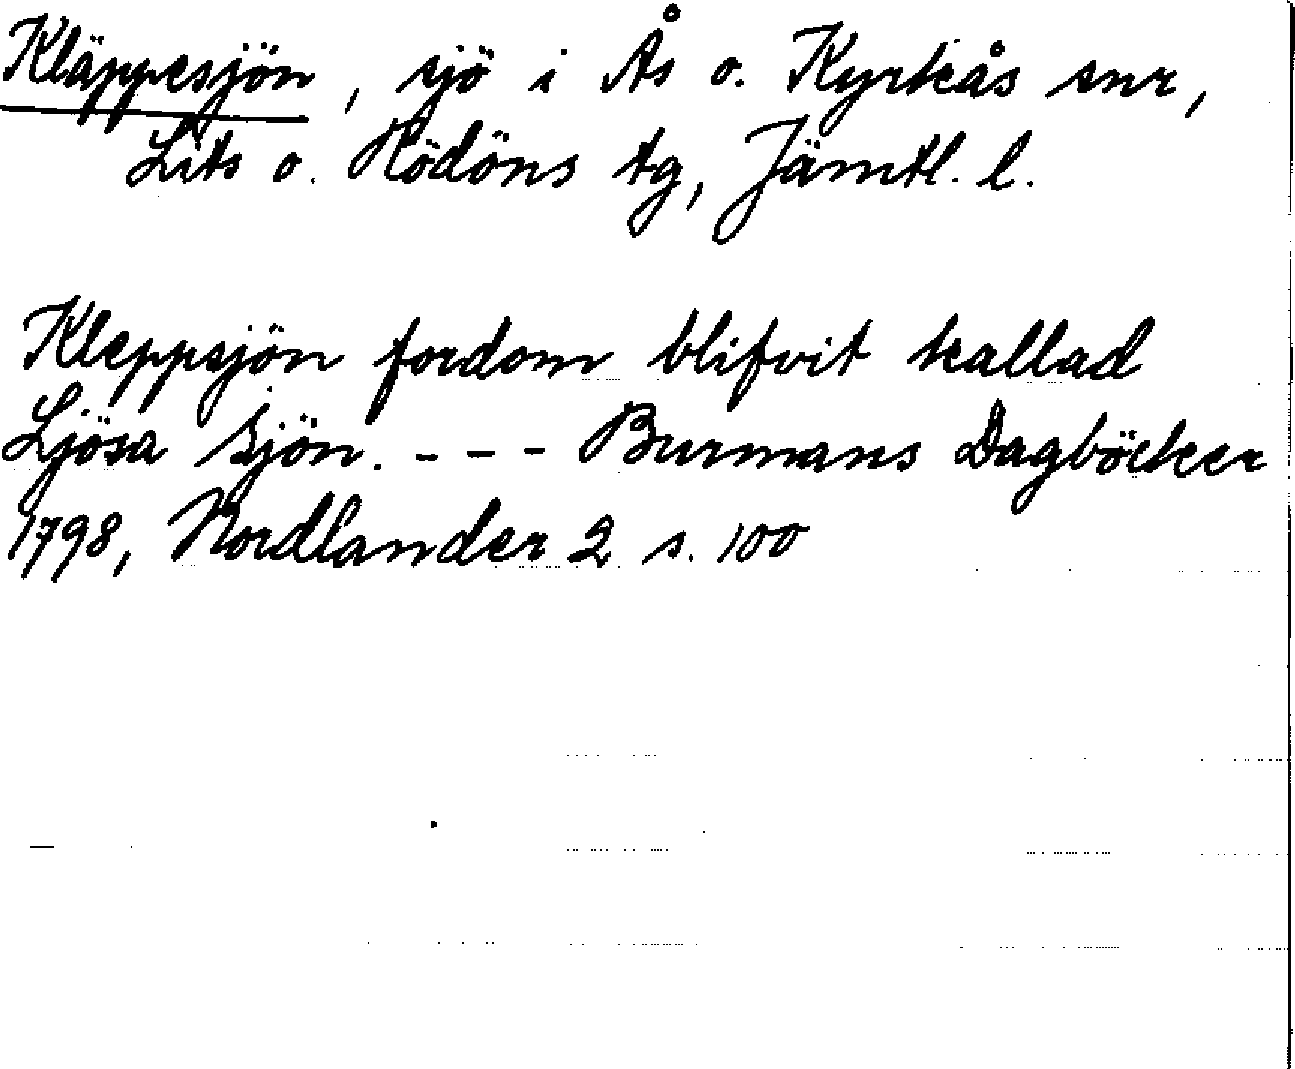 Kläppesjön, sjö i Ås o. Kyrkås snr,
Lits o. Rödöns tg, Jämtl. l.
Kleppsjön fordom blifvit kallad
Ljösa Sjön. - - - Burmans Dagböcker
1798, Nordlander 2 s. 100